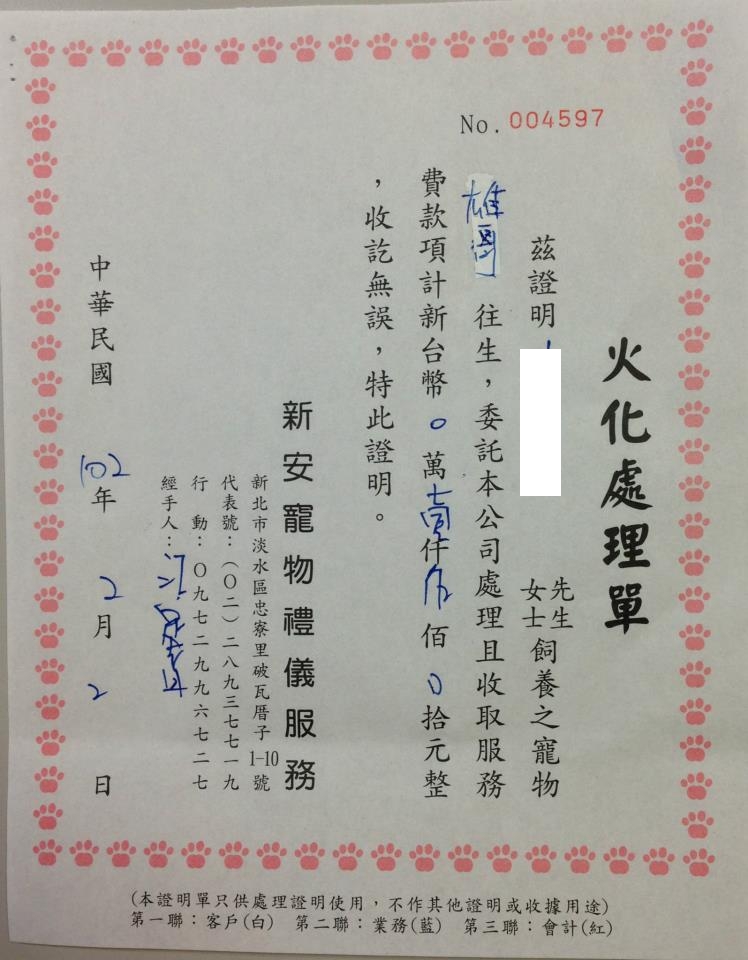 No. 004597
火化處理單
茲證明 先生女士飼養之寵物
往生，委託本公司處理且收取服務
費款項計新台幣0萬壹仟 佰0拾元整
，收訖無誤，特此證明。
新安寵物禮儀服務
新北市淡水區忠寮里破瓦厝子1-10號
代表號：(〇二)二八九三七七一九
行 動：〇九七二九九六七二七
經手人：
中華民國102年2月2日
(本證明單只供處理證明使用，不作其他證明或收據用途)
第一聯：客戶(白) 第二聯：業務(藍) 第三聯：會計(紅)